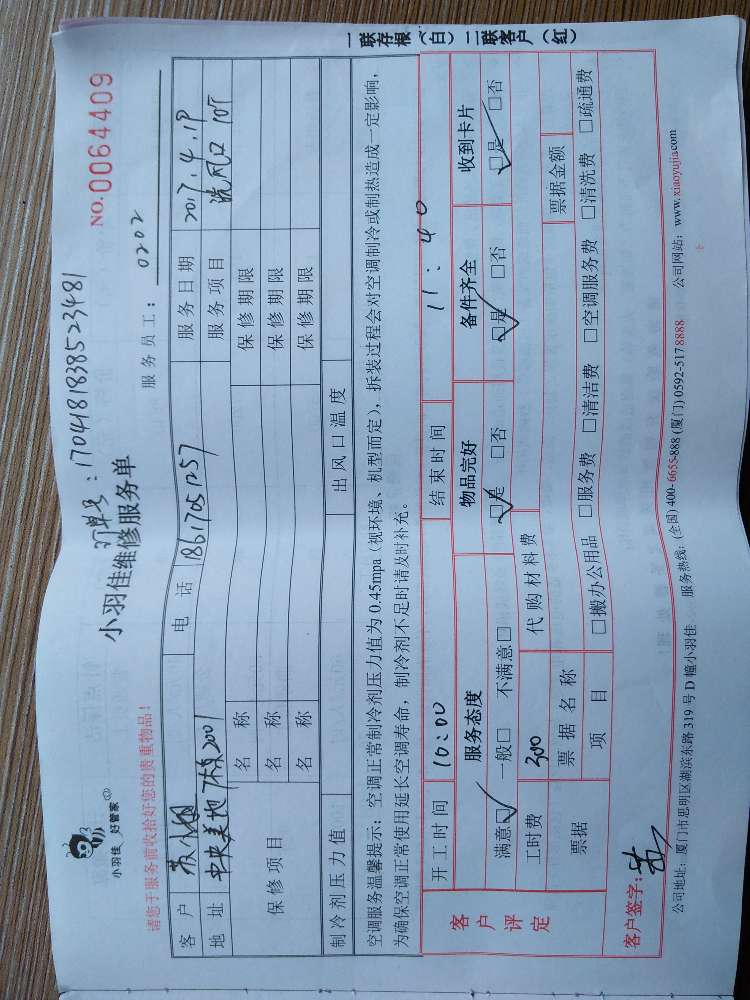 小羽佳 好管家
订单号:170418183852348­1
小羽佳维修服务单
NO.0064409
请您于服务前收拾好您的贵重物品!
服务员工: 0202
客户 苏小姐 电话 18617051257 服务日期 2017.4.19
地址 中央美地7栋2001 服务项目 洗风口10个
保修项目 名称 保修期限
名称 保修期限
名称 保修期限
制冷剂压力值 出风口温度
空调服务温馨提示:空调正常制冷剂压力值为0.45mpa(视环境、机型而定),拆装过程会对空调制冷或制热造成一定影响,
为确保空调正常使用延长空调寿命,制冷剂不足时请及时补充。
客户评定 开工时间 10:00 结束时间 11:40
服务态度 物品完好 备件齐全 收到卡片
满意☑ 一般□ 不满意□ ☑是 □否 ☑是 □否 ☑是 □否
工时费 300 代购材料费
票据 票据名称 票据金额
项目 □搬办公用品 □服务费 □清洁费 □空调服务费 □清洗费 □疏通费
客户签字:
公司地址:厦门市思明区湖滨东路319号D幢小羽佳 服务热线:(全国)400-6655-888(厦门)0592-5178888 公司网站:www.xiaoyujia.com
一联存根(白)二联客户(红)